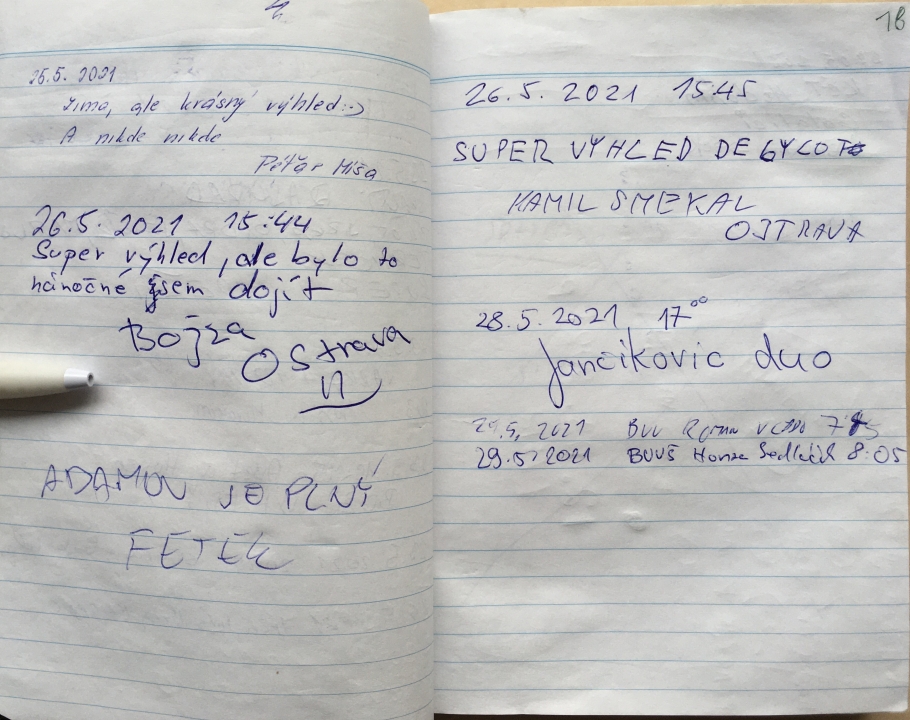 25.5. 2021
zima, ale krásný výhled :-)
A nikde nikdo
Míša
26.5. 2021 15:44
Super výhled, ale bylo to
náročné jsem dojít
Bojza
Ostrava
ADAMOV JE PLNÝ
FETEK
18
26.5. 2021 15:45
SUPER VÝHLED DEGYLOTE
KAMIL SMEKAL
OSTRAVA
28.5.2021 17⁰⁰
Jančikovic duo
29.5. 2021
29.5. 2021 Honza Sedláček 8:05